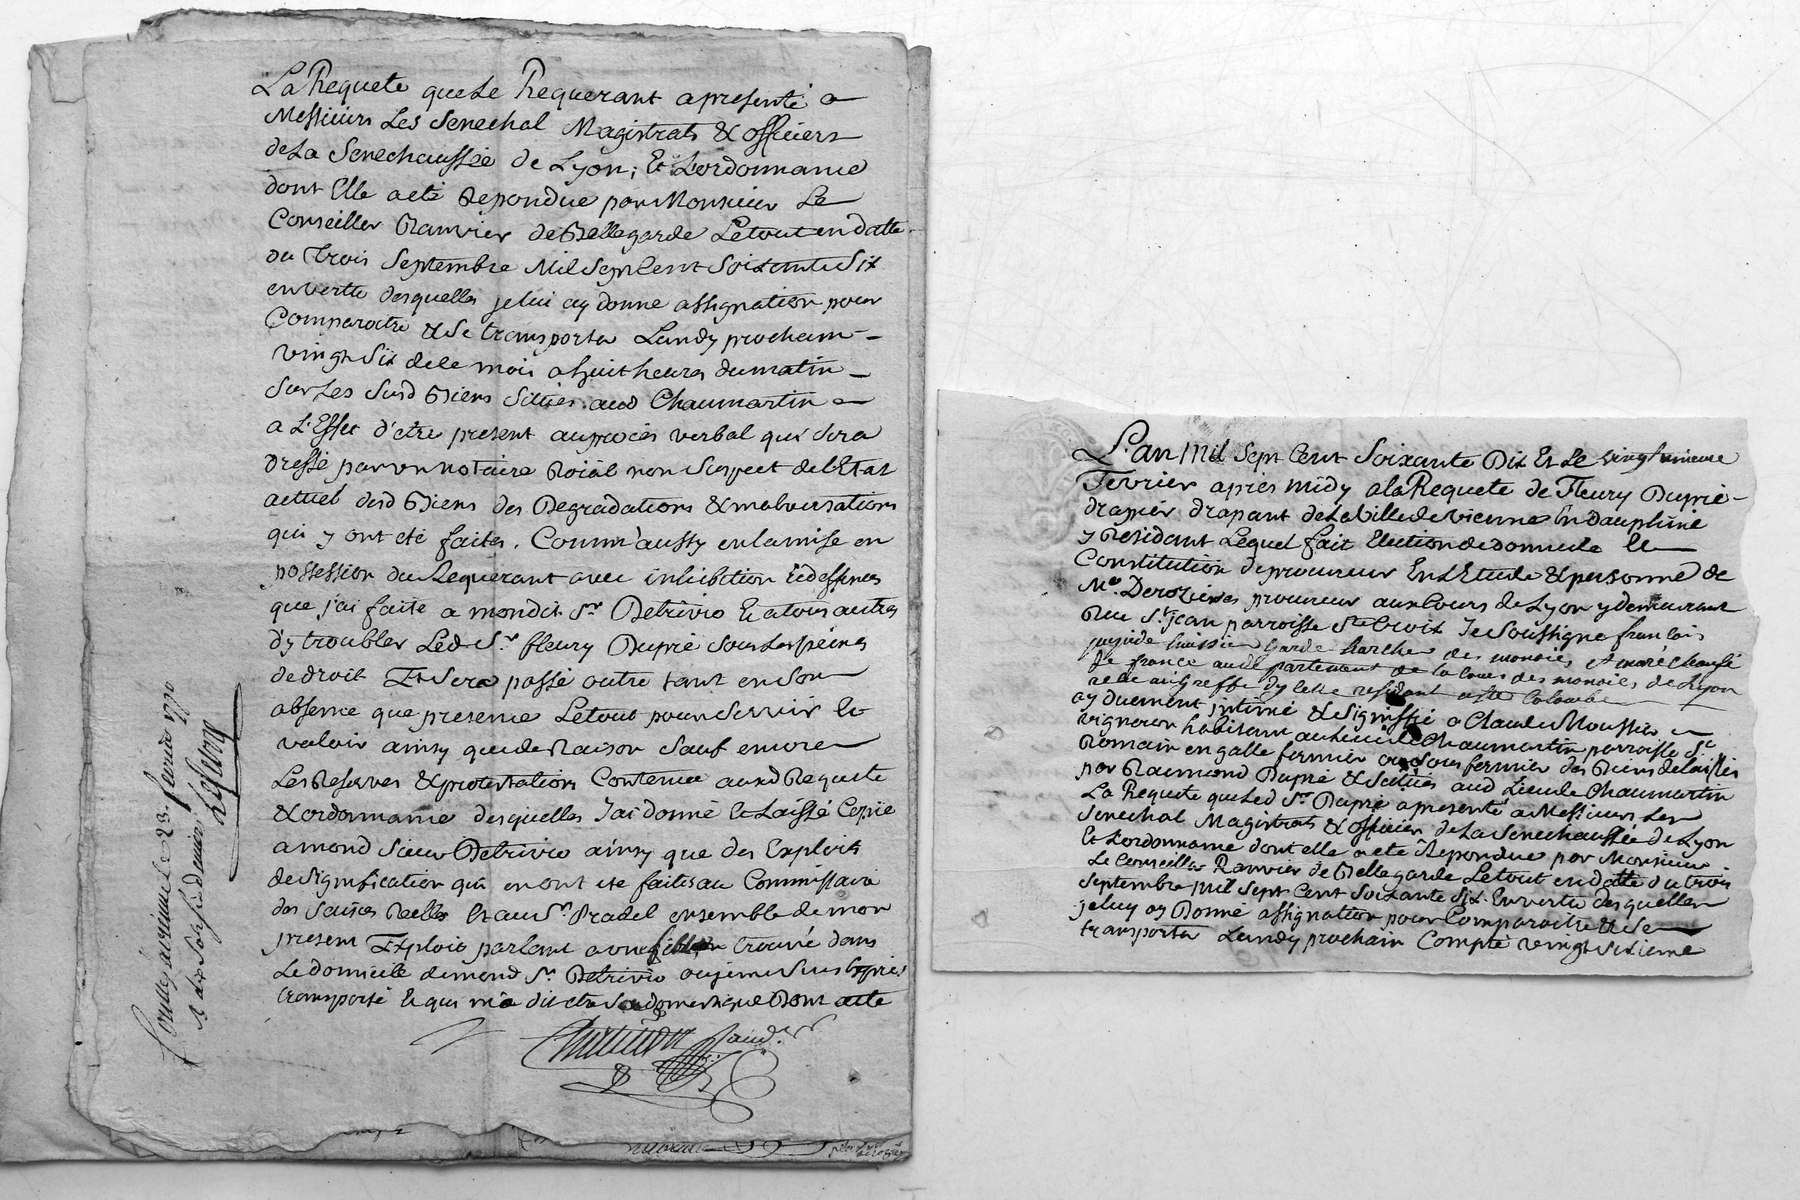 La Requete que Le Requerant apresenté a
Messieurs Les Senechal Magistrats & officiers
de La Senechaussée de Lyon; Et Lordonnance
dont Elle a eté Repondue par Monsieur Le
Conseiller Ranvier de Bellegarde Le tout en datte
du Trois Septembre Mil Sept Cent Soixante Six
en vertu desquelles je lui ay donné assignation pour
Comparoitre & Se transporter Lundy prochain
vingt Six de ce mois a huit heures du matin
Sur Les Susd Biens Situés aud Chaumartin
a L'Effet d'etre present au procès verbal qui Sera
dressé par un notaire Roial non Suspect de l'Etat
actuel desd Biens des Degradations & malversations
qui y ont eté faites. Comm'aussy en la mise en
possession du Requerant avec inhibition & deffences
que j'ai faite a mondit Sr Detrivio Et a tous autres
d'y troubler Led Sr fleury Dupré Sous Les peines
de droit Et Sera passé outre tant en Son
absence que presence Le tout pour Servir Et
valoir ainsy que de Raison Sauf encore
Les Reserves & protestations Contenues aud Requete
& ordonnance desquelles J'ai donné Et Laissé Copie
a mond Sieur Detrivio ainsy que des Exploits
de Signification qui en ont eté faits au Commissaire
des Saisies Reelles Et au Sr Pradel ensemble de mon
present Exploit parlant a une fille trouvée dans
Le domicile de mond Sr Detrivio ou je me Suis Exprès
transporté Et qui m'a dit etre Sa domestique Dont acte
Conllé a Vienne le 23 fevrier 1770
L'an Mil Sept Cent Soixante Dix Et Le vingt unieme
Fevrier après midy a la Requete de Fleury Dupré
drapier drapant de La Ville de Vienne En dauphiné
y Residant Lequel fait Election de domicile Et
Constitution de procureur En L'Etude & personne de
Me. Derozieres procureur aux Cours de Lyon y demeurant
Rue St. jean parroisse Ste Croix Je Soussigné françois
huissier Garde Marteau des monoies et maréchaussé
de france au departement de la Cour des monoies de Lyon
au Greffe d'y celle residant a Ste Colombe
ay duement intimé & Signiffié a Claude Moussier
vigneron habitant au Lieu de Chaumartin parroisse St
Romain en galle fermier ou Sous fermier des Biens delaissés
par Raimond Dupré & Situés aud Lieu de Chaumartin
La Requete que Led Sr Dupré apresenté a Messieurs Les
Senechal Magistrats & officiers de La Senechaussée de Lyon
Et Lordonnance dont elle a eté Repondue par Monsieur
Le Conseiller Ranvier de Bellegarde Le tout en datte du trois
Septembre Mil Sept Cent Soixante Six En vertu desquelles
je luy ay Donné assignation pour Comparoitre & Se
transporter Lundy prochain Compté vingt Sixieme